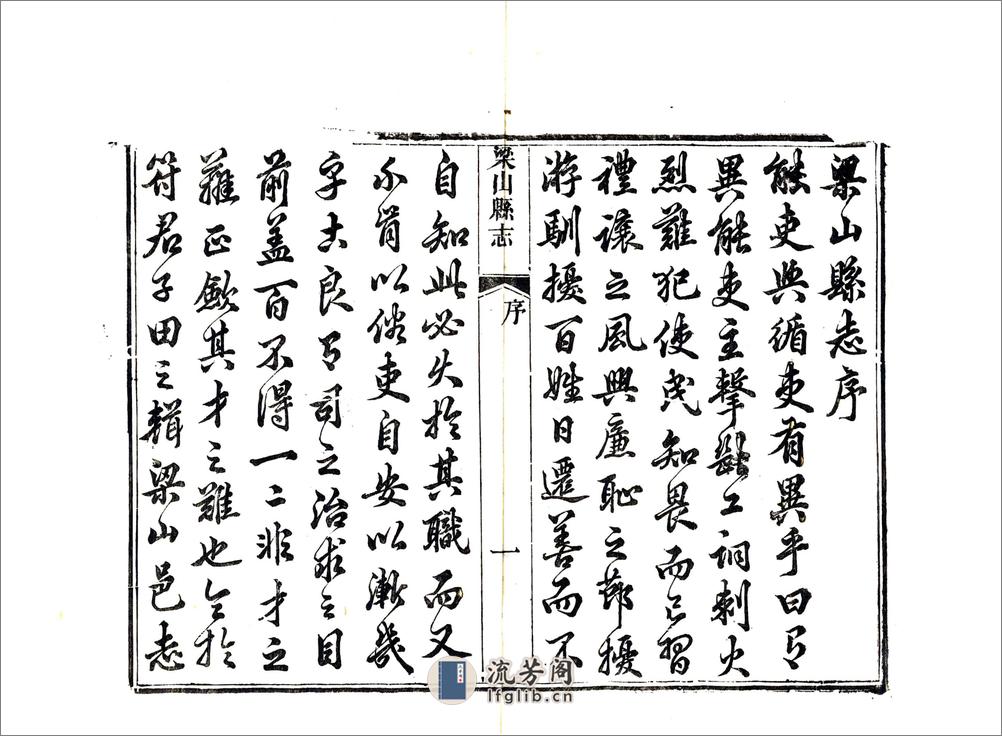 梁山縣志序
能吏與循吏有異乎曰有
異能吏主擊斷工詗刺火
烈難犯使民知畏而已習
禮讓之風興廉恥之節擾
游馴擾百姓日遷善而不
梁山縣志
序
一
自知此必久於其職而又
不肯以俗吏自安以漸幾
乎古良有司之治求之目
前蓋百不得一二非才之
難正歛其才之難也今於
符君子田之輯梁山邑志
流芳阁
lfglib.cn